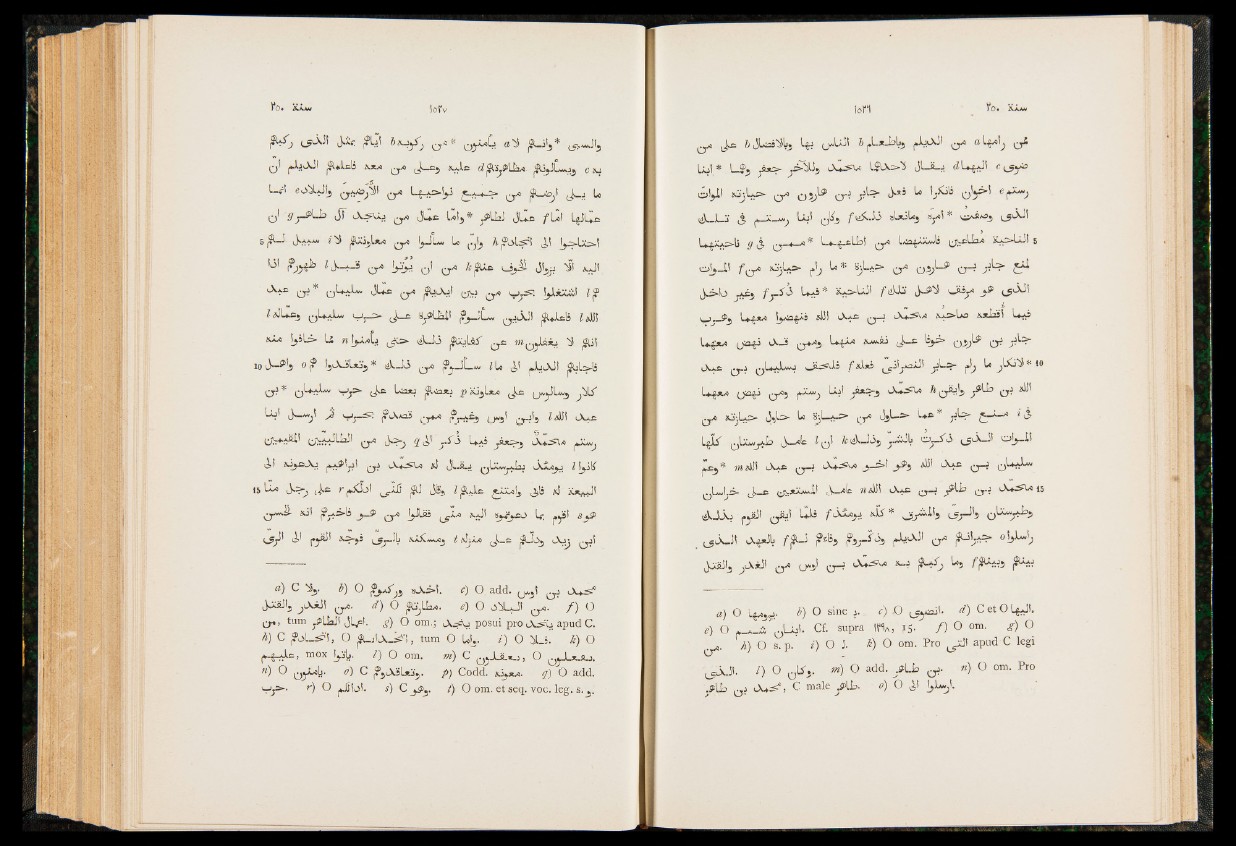 سنة ٢٥٠ ١٥٢٦
ممن رامها a من الديلم وباطعامهم b الناس بها وبالافضال b على من
ضوى c اليهما d يقال لاحدهما محمد وللآخر جعفر وهما * ابنا
رستم e اخوان فانكرا ما فعل جابر بن هارون من حيازته الموات
الذى وصفت * امره ومانعاه ذلك f وكان ابنا رستم فى تلك
5 الناحية مطاعين فاستنهضا من اطاعهما * ممن فى g ناحيتهما
لمنع جابر بن هارون من حيازة * ما رام حيازته من f الموات
الذى هو مرفق لاهل تلك f الناحية * فيما ذكر f وغير داخل
فيما اقطعه صاحبه محمد بن عبد الله فنهضوا معهما وهرب
جابر بن هارون خوفا على نفسه منهما وممن قد نهض معهما
10 * لانكار ما رام جابر النصرانى فعله f فلحق بسليمان بن عبد
الله بن طاهر وايقن h محمد وجعفر ابنا رستم ومن نهض معهما
فى i منع جابر * عما حاول من حيازة ما حاول حيازته من
الموات الذى ذكرت بالشر وذلك k ان l عامل طبرستان كلها
سليمان بن عبد الله وهو اخو محمد بن عبد الله m * وعم
15 محمد بن طاهر بن عبد الله n عامل المستعين على خراسان
وطبرستان والرى والمشرق * كله يومئذ f فلما ايقن القوم بذلك
راسلوا o جيرانهم من الديلم وذكروهم وفاءهم لهم f بالعهد الذى
بينهم وبينهم f وما ركبهم به محمد بن اوس من الغدر والقتل
a) O يرومها. b) O sine ب. c) O انضوى. d) C et O اليها.
e) O ابنان. Cf. supra ١٣٩٨, 15. f) O om. g) O
من. h) O s. p. i) O. k) O om. Pro التى apud C legi
الذى. l) O وكان. m) O add. بن طاهر. n) O om. Pro
محمد بن طاهر, C male طاهر. o) O ارسلوا الى.
سنة ٢٥٠ ١٥٢٧
والسبى * وانهم لا a يأمنون * من ركوبه b اياهم بمثل الذى ركبهم
به c ويسألونهم مظاهرتهم d عليه وعلى من معه فاعلمهم الديلم ان
ما يلى ارضهم من جميع نواحيها من الارضين والبلاد e انما
عمالها اما f عمال لطاهر * واما عمال من يتخذ آل طاهر g ان
5 احتاجوا الى انجادهم h وان ما سألوا من معاونتهم لا i سبيل لهم
اليه الا بزوال الخوف عنهم k من ان يؤتوا من قبل l ظهورهم اذا
هم l اشتغلوا بحرب من بين ايديهم من عمال سليمان * بن عبد
الله l فاعلمهم الذين سألوهم المظاهرة على حرب سليمان وعماله l
انهم لا يغفلون m عن كفايتهم ذلك حتى يأمنوا n مما خافوا منه
10 فاجابهم الديلم الى ما l سألوهم من ذلك * وتعاقدوا هم o واهل
كلار وسالوس على معاونة p بعضهم بعضا على حرب سليمان * بن
عبد الله l وابن اوس وغيرهم ممن قصدهم بحرب ثم ارسل ابنا
رستم محمد وجعفر فيما ذكر q الى رجل من الطالبيين المقيمين
كانوا l يومئذ بطبرستان يقال له محمد بن ابراهيم يدعونه الى
15 البيعة له فابى وامتنع عليهم l وقال لهم لكنى ادلكم r على رجل منا
هو s اقوم بما دعوتموه اليه منى فقالوا من هو فاخبرهم انه الحسن
ابن زيد ودلهم على منزله t ومسكنه بالرى فوجه القوم الى الرى
a) C ولا. b) O وركوبهم. c) O add. محمد بن اوس
من الغدر والقتل. d) O. e) O من البلاد. f) O
من, tum اعمال الطاهر. g) O om.; يتخذ posui pro apud C.
h) C, O, tum O. i) O فلا. k) O
عليهم, mox ياتوا. l) O om. m) C, O.
n) O يامنون. o) C وتعاقدهم. p) Codd. معونة. q) O add.
حرب. r) O. s) C وهو. t) O om. et seq. voc. leg. s. و.